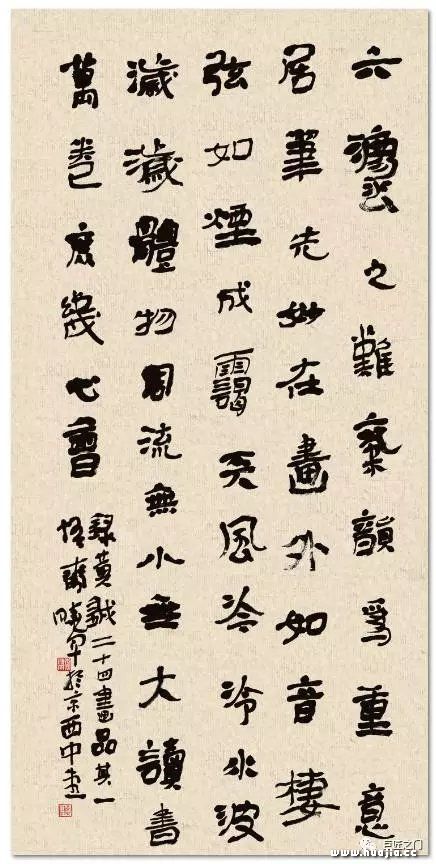 六灋之難氣韻爲重意
居筆先妙在畫外如音棲
弦如煙成靄天風泠泠水波
濊濊體物周流無小無大讀書
萬卷庶幾心會
錄黃鉞二十四畫品其一
於京西中
巨匠之门
www.huajia.cc